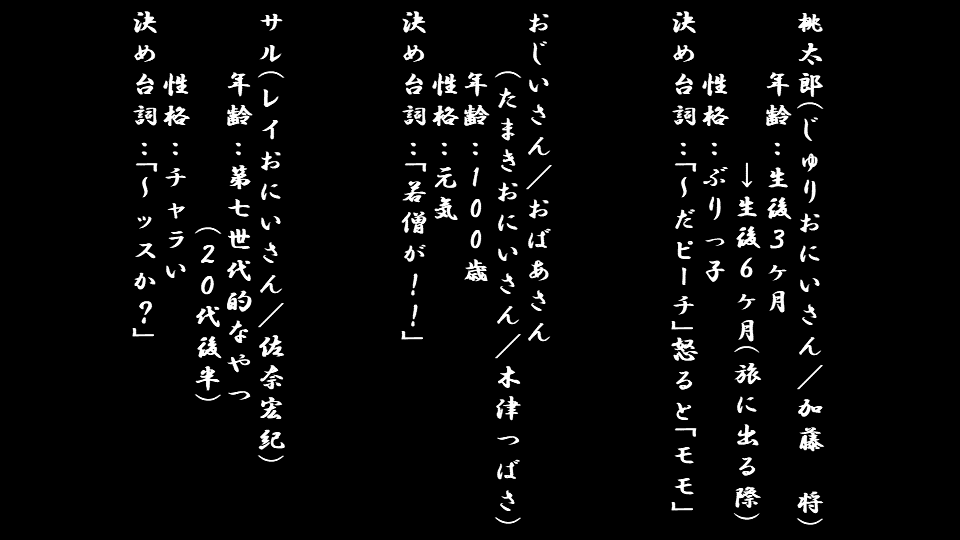 桃太郎(じゅりおにいさん/加藤 将)
年齢:生後3ヶ月
↓生後6ヶ月(旅に出る際)
性格:ぶりっ子
決め台詞:「~だピーチ」怒ると「モモ」
おじいさん/おばあさん
(たまきおにいさん/木津つばさ)
年齢:100歳
性格:元気
決め台詞:「若僧が!!」
サル(レイおにいさん/佐奈宏紀)
年齢:第七世代的なやつ
(20代後半)
性格:チャラい
決め台詞:「~ッスか?」